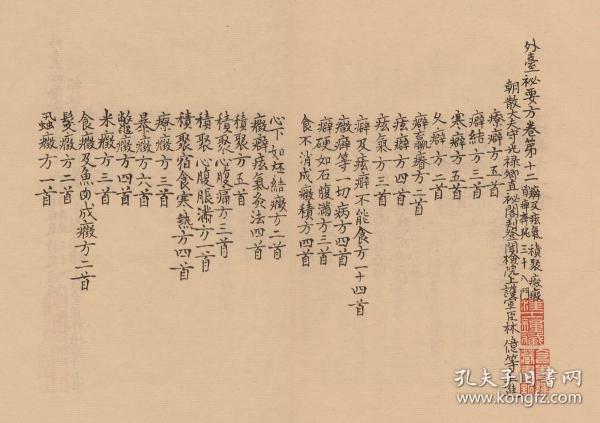 外臺祕要方卷第十二 癖及痃氣積聚癥瘕胷痺奔㹠三十八門
朝散大夫守光祿卿直祕閣判登聞檢院上護軍臣林億等上進
療癖方五首
癖結方三首
寒癖方五首
久癖方二首
癖羸瘠方二首
痃癖方四首
痃氣方三首
癖及痃癖不能食方一十四首
癥癖等一切病方四首
癖硬如石腹滿方三首
食不消成癥積方四首
心下如坯結癥方二首
癥癖痃氣灸法四首
積聚方五首
積聚心腹痛方三首
積聚心腹脹滿方一首
積聚宿食寒熱方四首
療癥方三首
暴癥方六首
鼈癥方四首
米癥方三首
食癥及魚肉成癥方二首
髮癥方二首
蝨癥方一首
孔夫子旧书网
www.kongfz.com